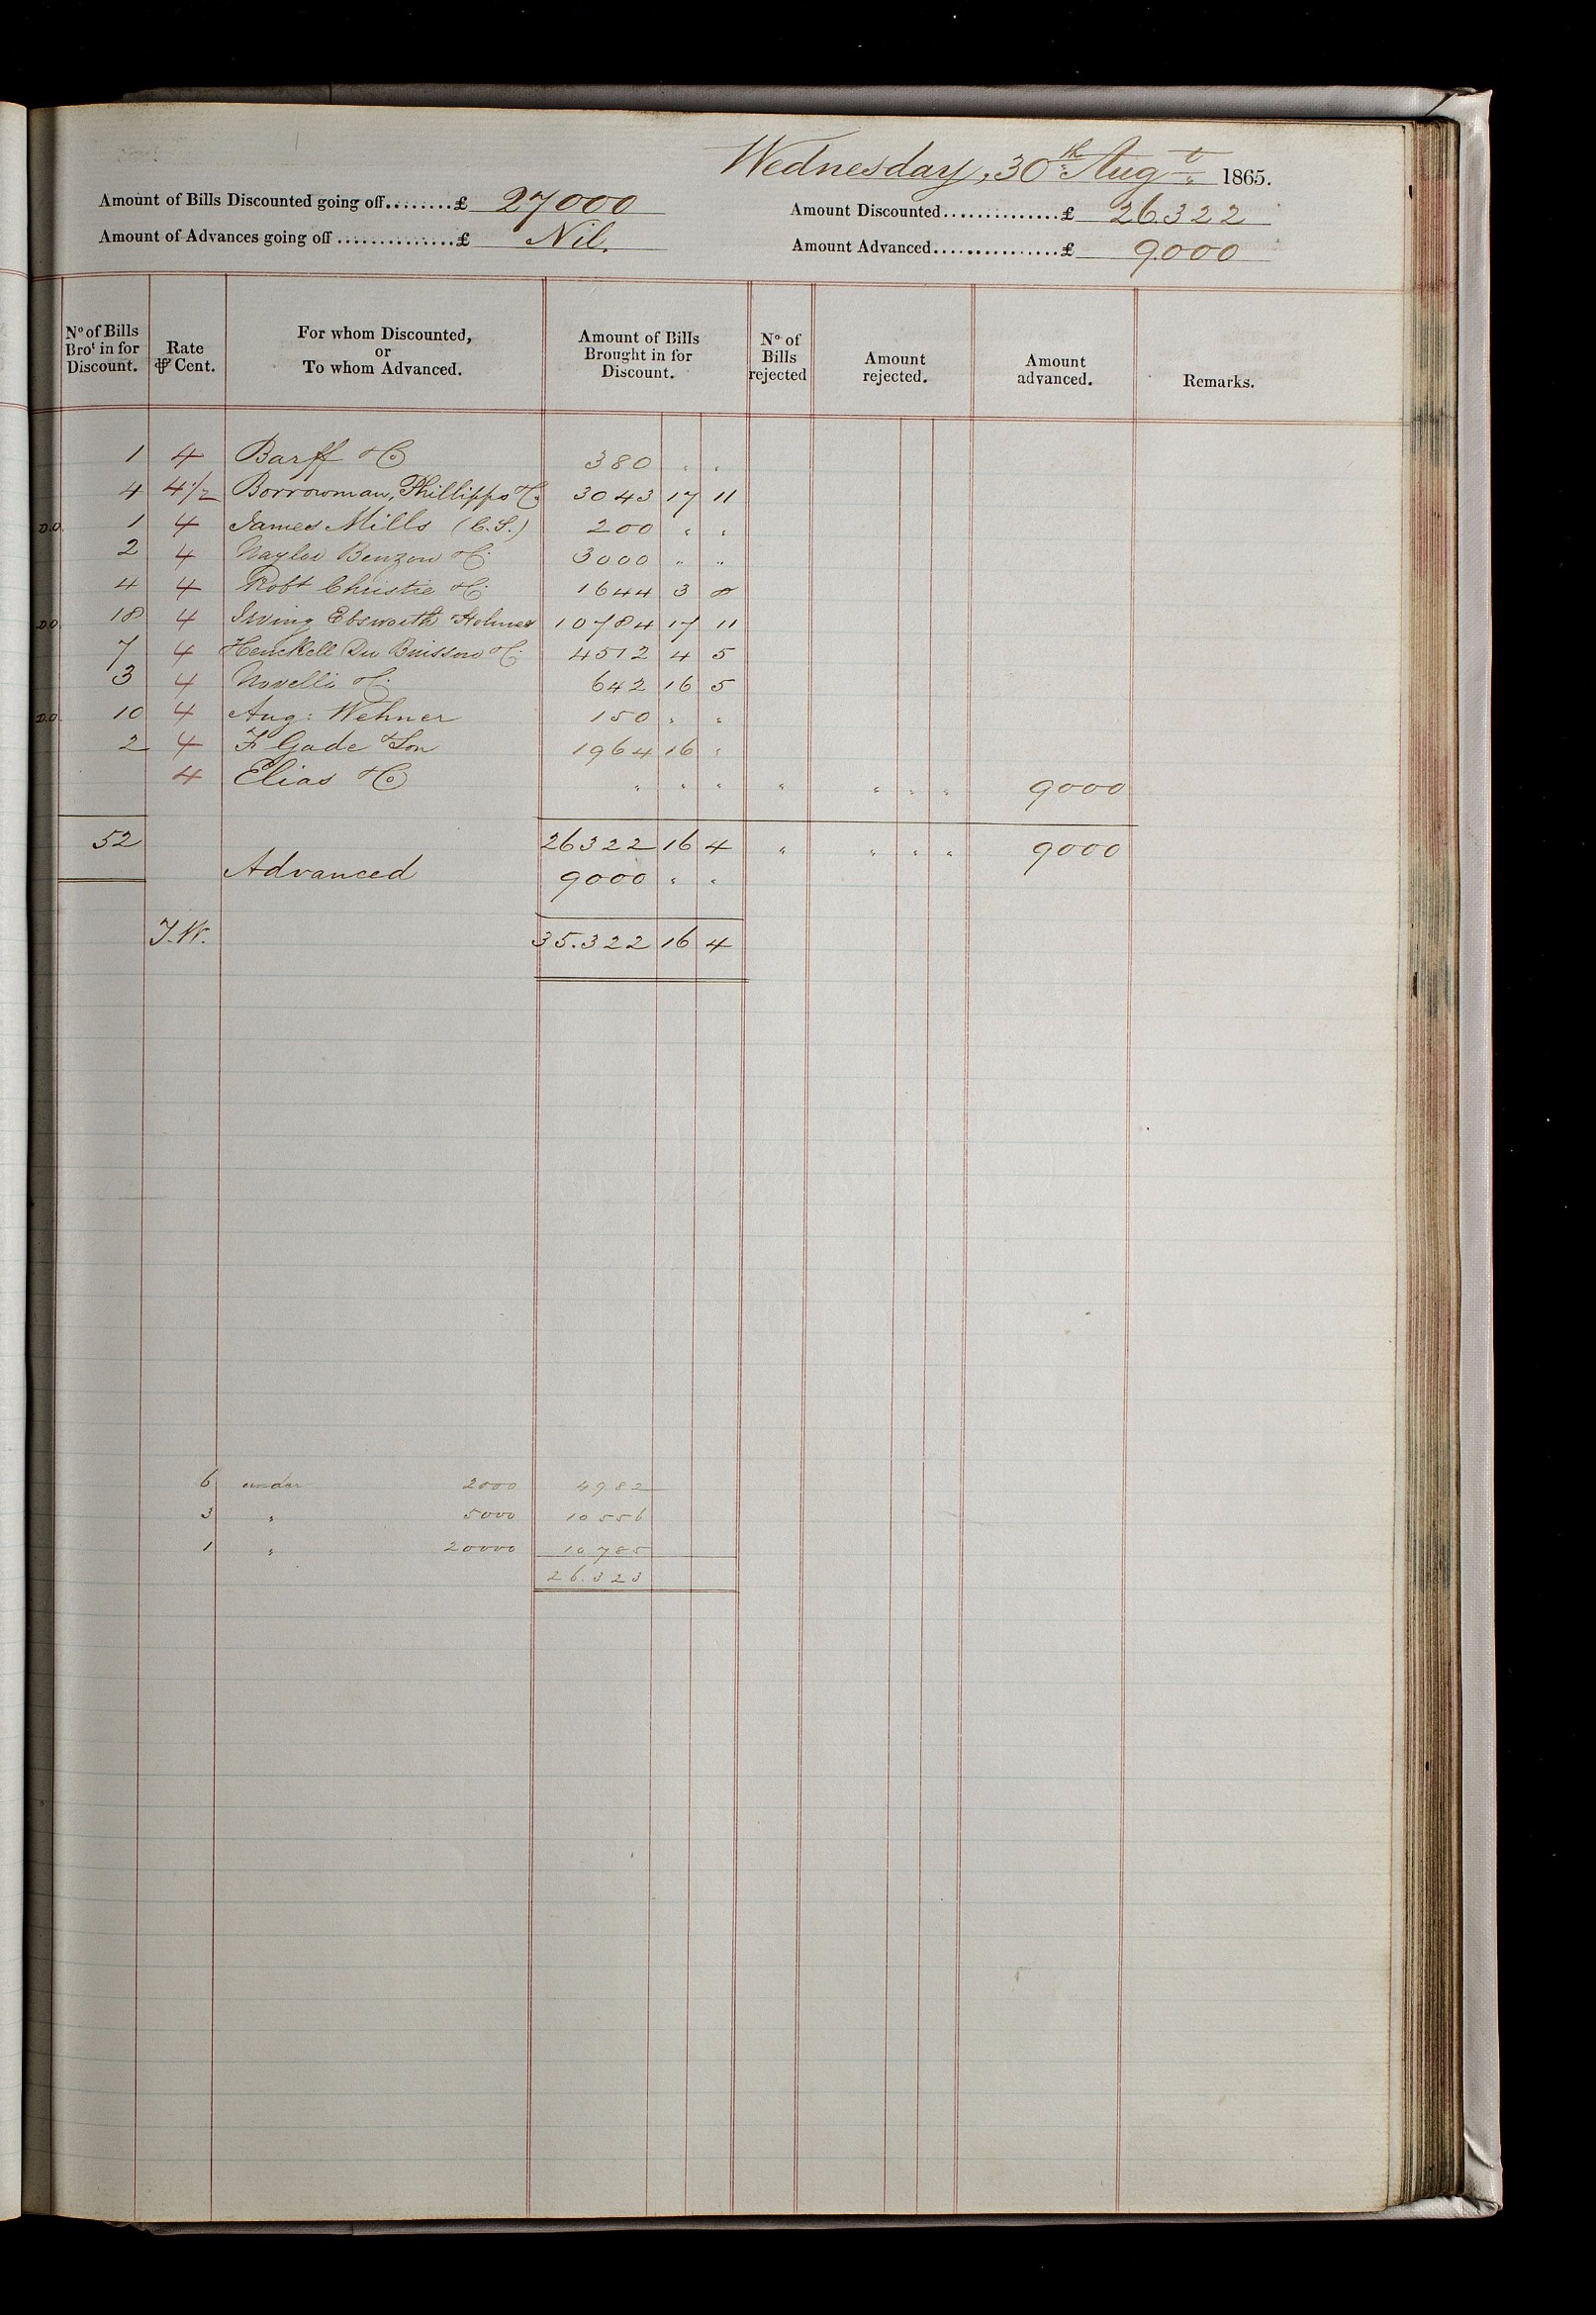 Wednesday, 30th Augt 1865.
Amount of Bills Discounted going off........£ 27000
Amount Discounted..............£ 26322
Amount of Advances going off..............£ Nil.
Amount Advanced................£ 9.000
No of Bills Brot in for Discount. Rate ⅌ Cent. For whom Discounted, or To whom Advanced. Amount of Bills Brought in for Discount. No of Bills rejected Amount rejected. Amount advanced. Remarks.
1 4 Barff & Co 380 " "
4 4 1/2 Borrowman, Phillipps & Co 3043 17 11
D.O. 1 4 James Mills (C.S.) 200 " "
2 4 Naylor Benzon & Co 3000 " "
4 4 Robt Christie & Co 1644 3 8
D.O. 18 4 Irving Ebsworth & Holmes 10784 17 11
7 4 Henckell Du Buisson & Co 4512 4 5
3 4 Novelli & Co 642 16 5
D.O. 10 4 Aug: Wehner 150 " "
2 4 F Gade & Son 1964 16 "
4 Elias & Co " " " " " " " 9000
52 26322 16 4 " " " " 9000
Advanced 9000 " "
J.W. 35.322 16 4
6 under 2000 4982
3 " 5000 10556
1 " 20000 10785
26.323